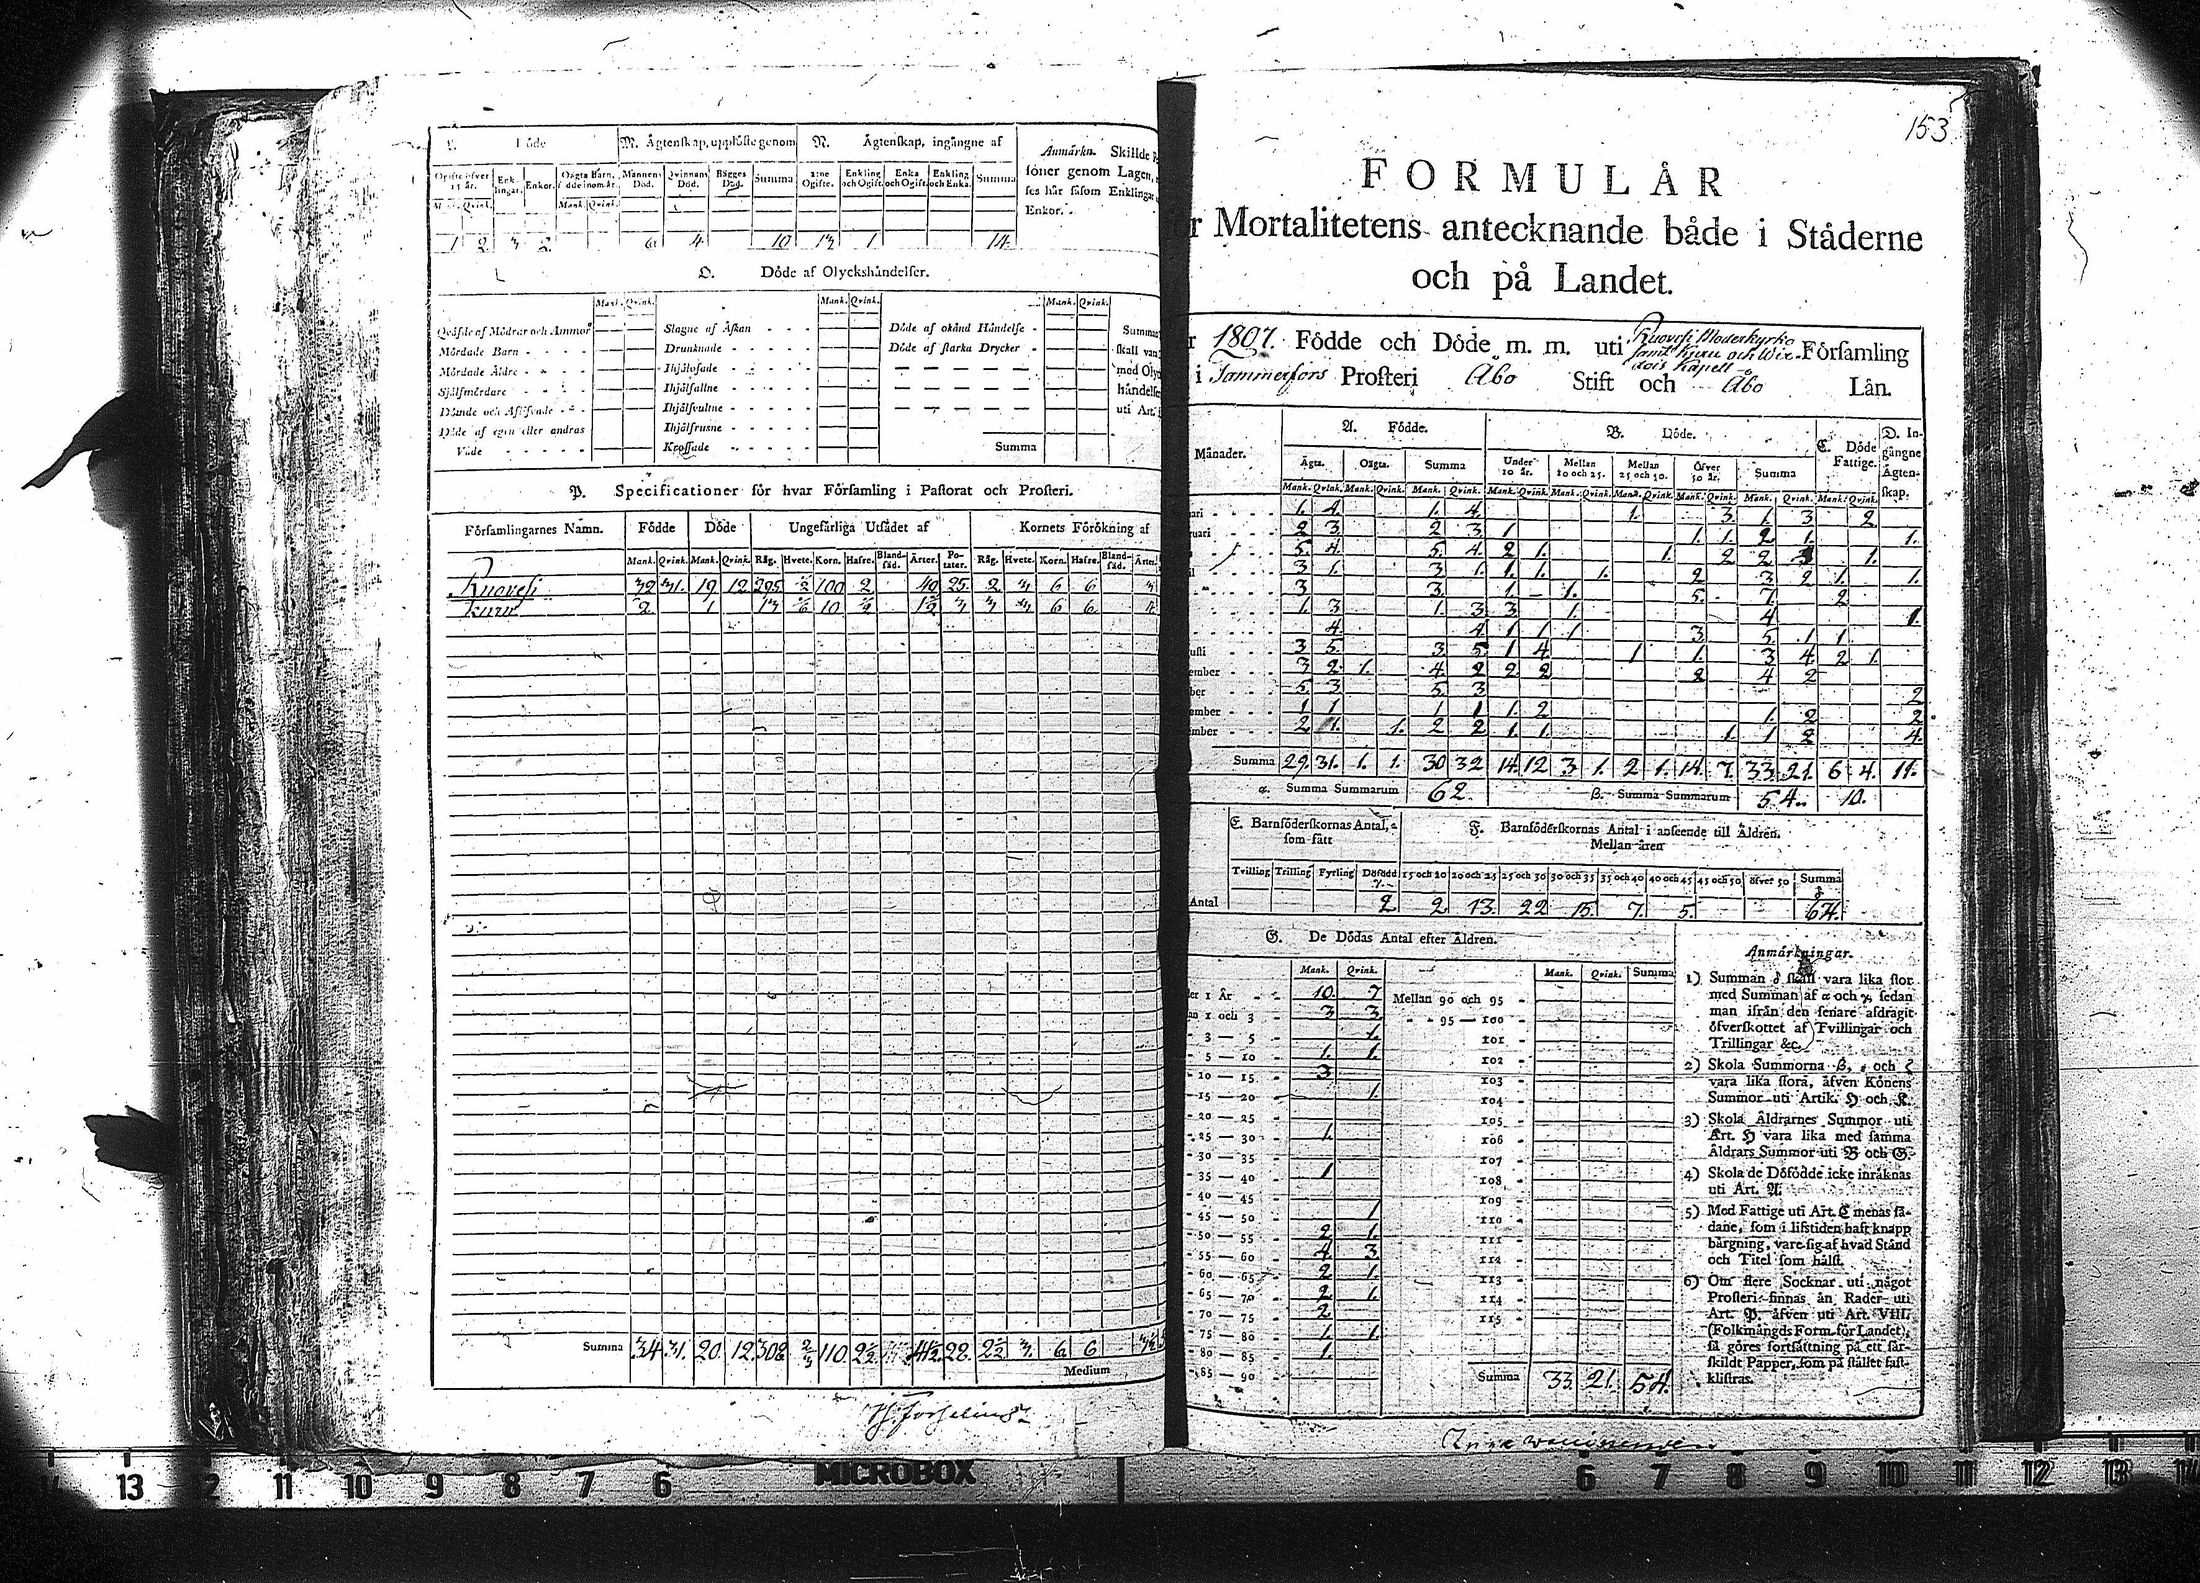 L. Döde
M. Ägtenskap, uppslöste genom
N. Ägtenskap, ingångne af
Anmärkn. Skillde
söner genom Lagen,
ses här såsom Enklingar
Enkor.
Gifte öfver 15 år.
Enklingar.
Enkor.
Oägta Barn, födde inom år.
Mannens Död.
Qvinnans Död.
Bägges Död.
Summa
2:ne Ogifte.
Enkling och Ogift.
Enka och Ogift.
Enkling och Enka.
Summa
Mank. Qvink. Mank. Qvink.
1 2 3 2 6 4 10 13 1 14.
O. Döde af Olyckshändelser.
Mank. Qvink. Mank. Qvink. Mank. Qvink.
Qväfde af Mödrar och Ammor Slagne af Åskan Döde af okänd Händelse Summa
Mördade Barn Drunknade Döde af starka Drycker skall vara
Mördade Äldre Ihjälofade med Oly
Själfmördare Ihjälfallne händelser
Ihjälsvultne uti Art.
Döde af egen eller andras Ihjälfrusne
Våde Krossade Summa
P. Specificationer för hvar Församling i Pastorat och Prosteri.
Församlingarnes Namn. Födde Döde Ungefärliga Utsådet af Kornets Förökning af
Mank. Qvink. Mank. Qvink. Råg. Hvete. Korn. Hafre. Blandsäd. Ärter. Potater. Råg. Hvete. Korn. Hafre. Blandsäd. Ärter.
Ruovesi 32 31. 19 12 295 100 2 40 25. 2 3 6 6 3
Kuru 2 1 13 10 3 3 6 6
Summa 34. 31. 20. 12. 308 110 2½ 22. 2½ 3. 6 6
Medium
153
FORMULÅR
r Mortalitetens antecknande både i Städerne
och på Landet.
r 1807. Födde och Döde m. m. uti Ruovesi Moderkyrko samt Kuru och Wir-dois Kapell Församling
i Tammerfors Prosteri Åbo Stift och Åbo Län.
Månader. A. Födde. B. Döde. C. Döde Fattige. D. Ingångne Ägtenskap.
Ägta. Oägta. Summa Under 10 år. Mellan 10 och 25. Mellan 25 och 50. Öfver 50 år. Summa
Mank. Qvink. Mank. Qvink. Mank. Qvink. Mank. Qvink. Mank. Qvink. Mank. Qvink. Mank. Qvink. Mank. Qvink. Mank. Qvink.
uari 1. 4. 1. 4. 1. 3. 1. 3 2
ruari 2 3 2 3 1 1. 1. 2 1. 1.
5. 4. 5. 4. 2 1. 1. 2 2 3 1.
il 3 1. 3 1. 1. 1. 1. 2 3 2 1. 1.
3 3. 1. 1. 5. 7. 2
1. 3 1. 3 3 1. 4 1.
4. 4. 1 1 1 3 5. 1 1
usti 3 5. 3. 5. 1 4. 1 1. 3 4. 2 1.
ember 3 2. 1. 4. 2 2 2 2 4 2
ber 5. 3 5. 3 2
ember 1 1 1 1 1. 2 1. 2 2
ember 2 1. 1. 2 2 1. 1. 1. 1 2 4.
Summa 29. 31. 1. 1. 30 32 14. 12 3 1. 2 1. 14. 7. 33 21. 6 4. 11.
α. Summa Summarum 62. β. Summa Summarum 54. 10.
E. Barnföderskornas Antal, som fått
F. Barnföderskornas Antal i anseende till Åldren.
Mellan åren
Tvilling Trilling Fyrling Dödfödd 15 och 20 20 och 25 25 och 30 30 och 35 35 och 40 40 och 45 45 och 50 öfver 50 Summa
Antal 2 2. 13. 22 15. 7. 5. 64.
G. De Dödas Antal efter Åldren.
Mank. Qvink. Mank. Qvink. Summa
er 1 År 10. 7 Mellan 90 och 95
an 1 och 3 3 3 95 — 100
3 — 5 1. 101
5 — 10 1. 1. 102
10 — 15 3 103
15 — 20 1. 104
20 — 25 105
25 — 30 1. 106
30 — 35 107
35 — 40 1 108
40 — 45 109
45 — 50 1 110
50 — 55 2 1. 111
55 — 60 4 3 112
60 — 65 2 1. 113
65 — 70 2 1. 114
70 — 75 2 115
75 — 80 1. 1.
80 — 85 1.
85 — 90 Summa 33. 21. 54.
Anmärkningar.
1) Summan δ skall vara lika stor
med Summan af α och γ, sedan
man ifrån den senare afdragit
öfverskottet af Tvillingar och
Trillingar &c.
2) Skola Summorna β, ε och ζ
vara lika stora, äfven Könens
Summor uti Artik. H och K.
3) Skola Åldrarnes Summor uti
Art. H vara lika med samma
Åldrars Summor uti B och G.
4) Skola de Dödfödde icke inräknas
uti Art. A.
5) Med Fattige uti Art. C menas så-
dane, som i lifstiden haft knapp
bärgning, vare sig af hvad Stånd
och Titel som hälst.
6) Om flere Socknar uti något
Prosteri finnas än Rader uti
Art. P. äfven uti Art. VIII.
(Folkmängds Form. för Landet),
så göres fortsättning på ett sär-
skildt Papper, som på stället fast-
klistras.
MICROBOX
13 12 11 10 9 8 7 6 6 7 8 9 10 11 12 13 14